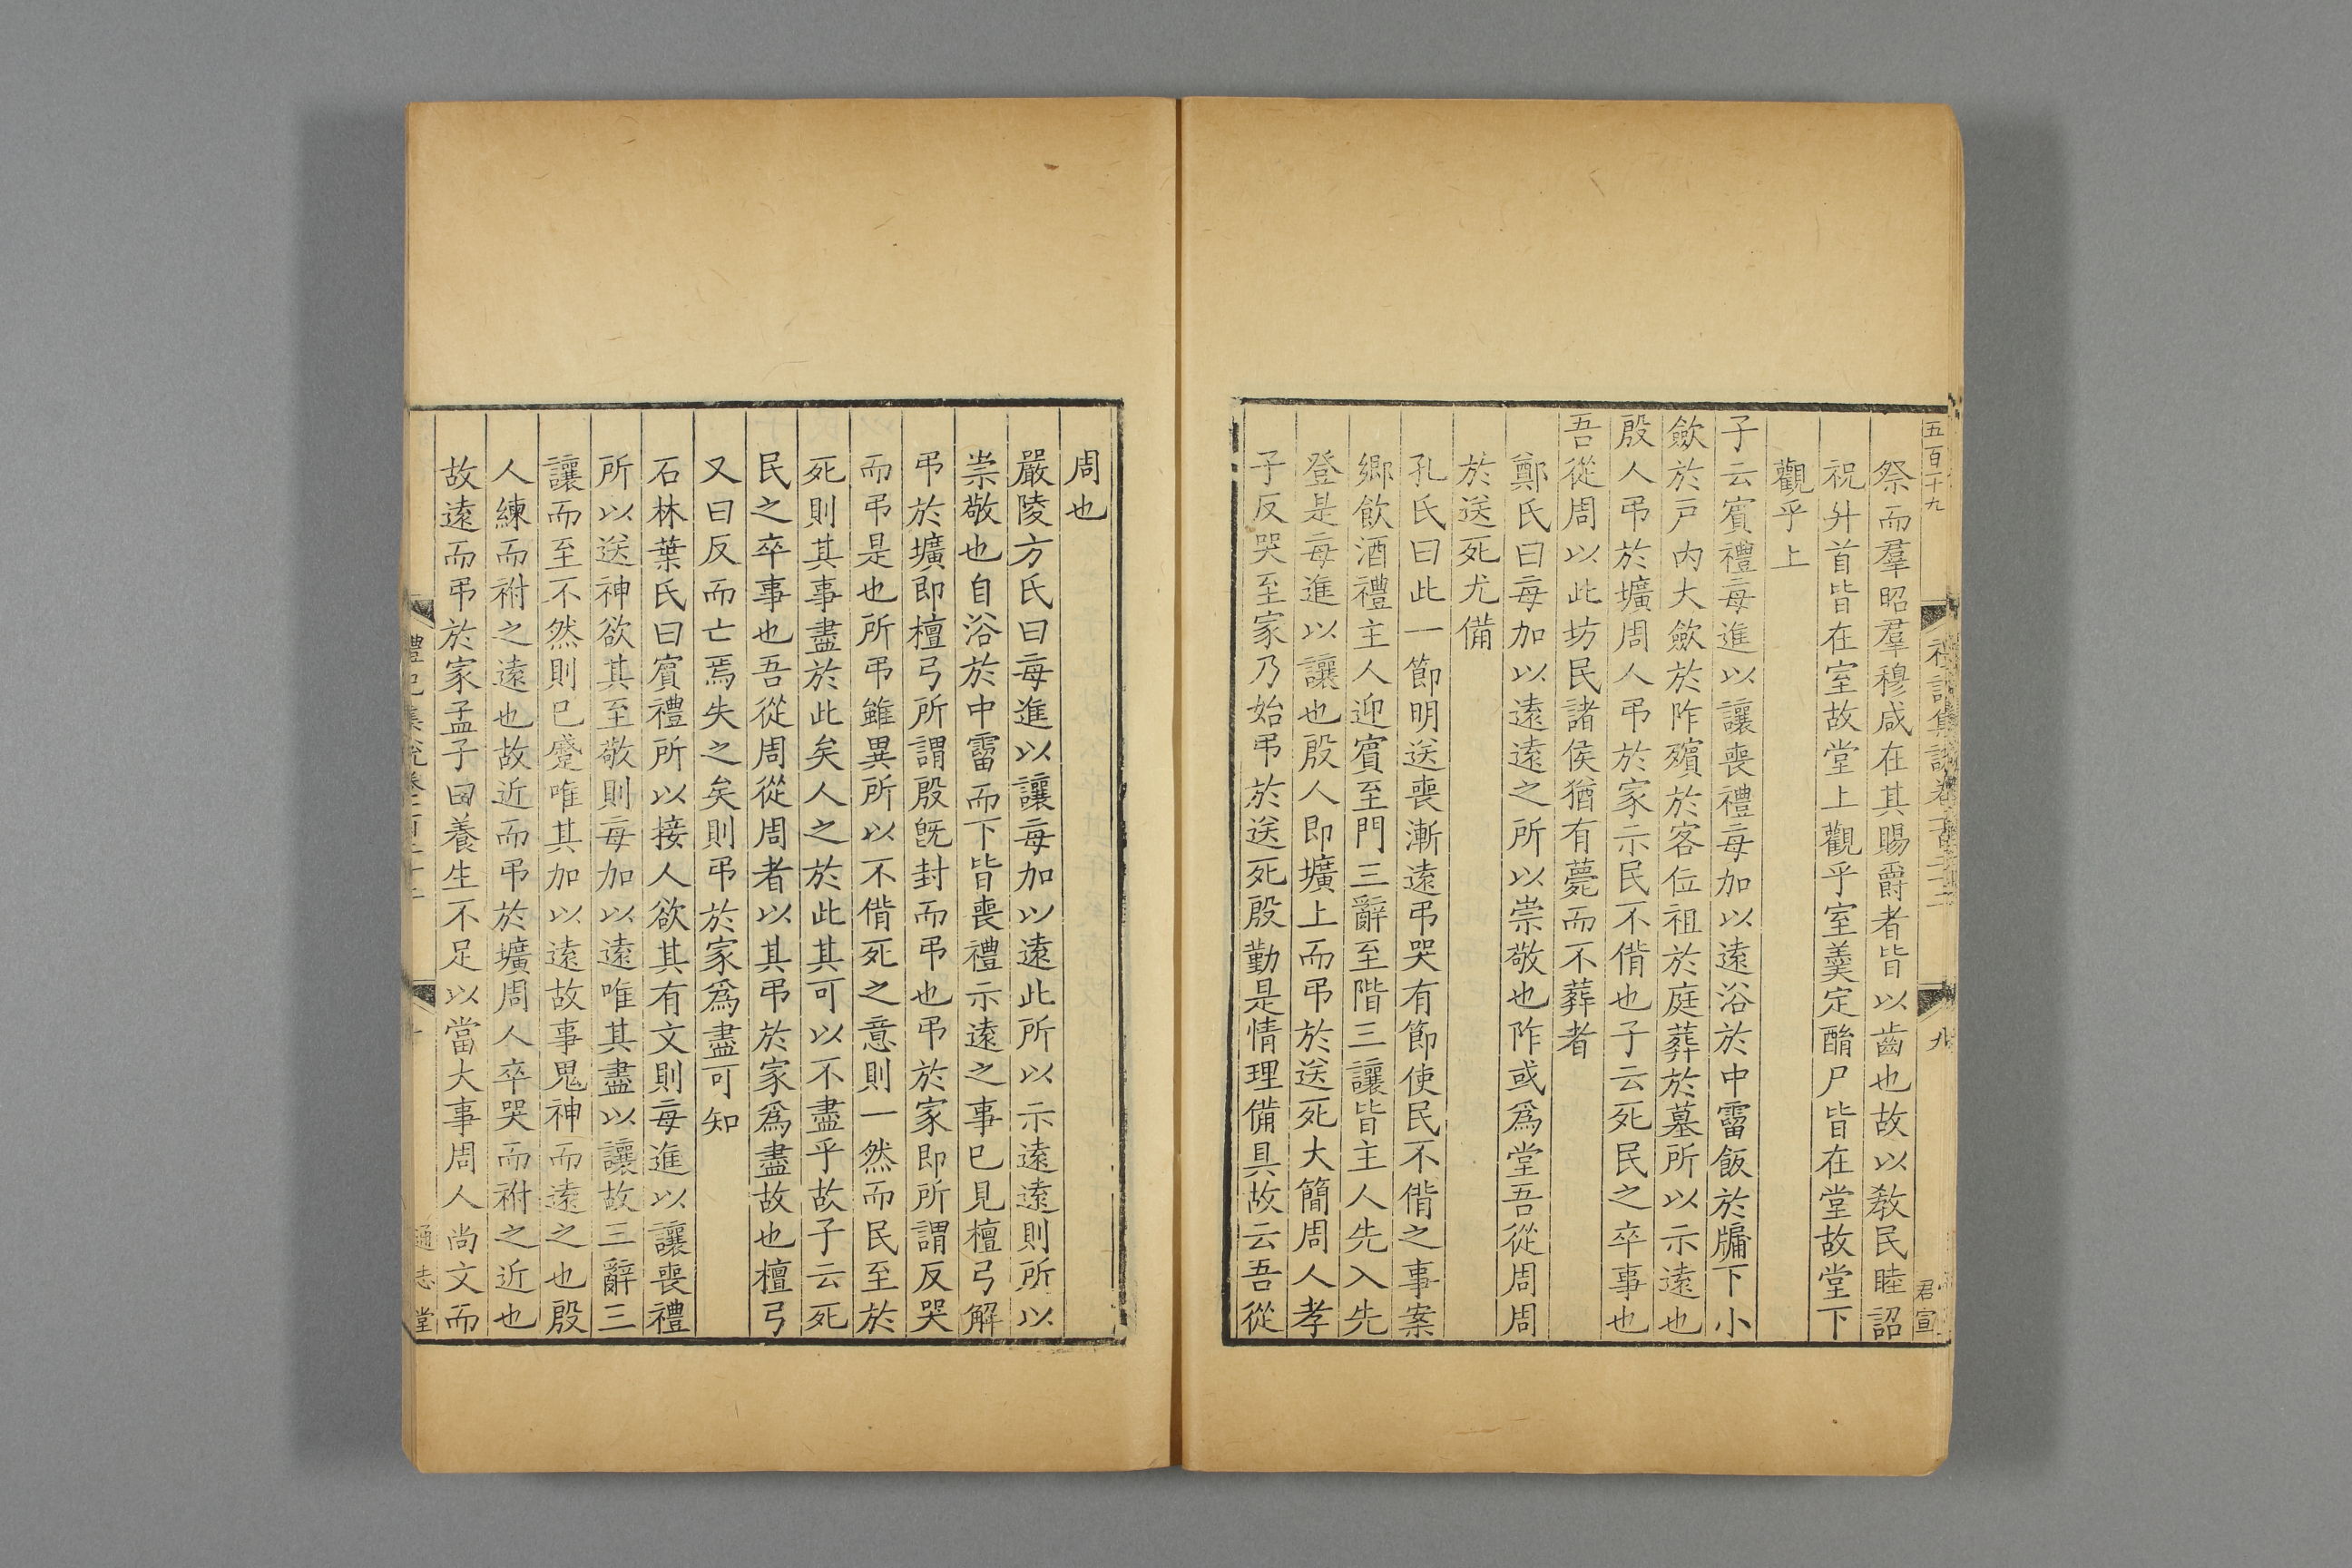 五百十九
九
君宣
祭而羣昭羣穆咸在其賜爵者皆以齒也故以教民睦詔
祝升首皆在室故堂上觀乎室羹定酳尸皆在堂故堂下
觀乎上
子云賓禮每進以讓喪禮每加以遠浴於中霤飯於牖下小
斂於戸内大斂於阼殯於客位祖於庭葬於墓所以示遠也
殷人弔於壙周人弔於家示民不偝也子云死民之卒事也
吾從周以此坊民諸侯猶有薨而不葬者
鄭氏曰每加以遠遠之所以崇敬也阼或爲堂吾從周周
於送死尤備
孔氏曰此一節明送喪漸遠弔哭有節使民不偝之事案
鄉飲酒禮主人迎賓至門三辭至階三讓皆主人先入先
登是每進以讓也殷人即壙上而弔於送死大簡周人孝
子反哭至家乃始弔於送死殷勤是情理備具故云吾從
周也
嚴陵方氏曰每進以讓每加以遠此所以示遠遠則所以
崇敬也自浴於中霤而下皆喪禮示遠之事巳見檀弓解
弔於壙即檀弓所謂殷旣封而弔也弔於家即所謂反哭
而弔是也所弔雖異所以不偝死之意則一然而民至於
死則其事盡於此矣人之於此其可以不盡乎故子云死
民之卒事也吾從周從周者以其弔於家爲盡故也檀弓
又曰反而亡焉失之矣則弔於家爲盡可知
石林葉氏曰賓禮所以接人欲其有文則每進以讓喪禮
所以送神欲其至敬則每加以遠唯其盡以讓故三辭三
讓而至不然則巳蹙唯其加以遠故事鬼神而遠之也殷
人練而祔之遠也故近而弔於壙周人卒哭而祔之近也
故遠而弔於家孟子曰養生不足以當大事周人尚文而
禮記集說卷
十
通志堂